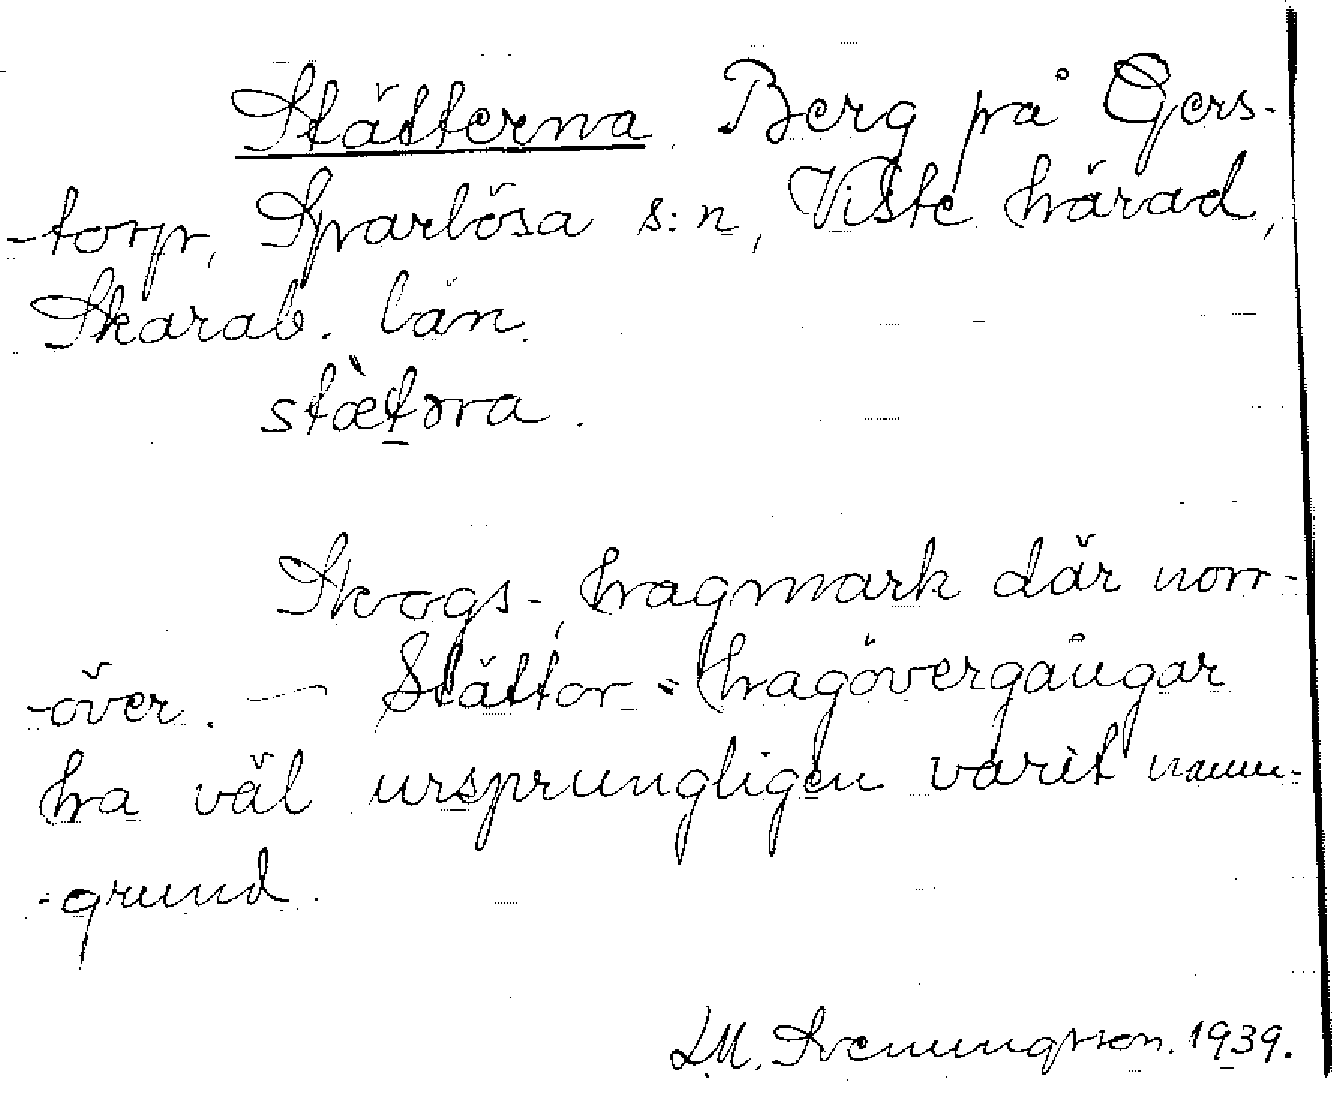 Stätterna Berg på Gers-
-torp, Sparlösa s:n, Viste härad,
Skarab. län.
stæ̀tǝra.
Skogs-, hagmark där norr-
-över. — Stättor = hagövergångar
ha väl ursprungligen varit namn-
-grund.
L.M. Svenungsson. 1939.